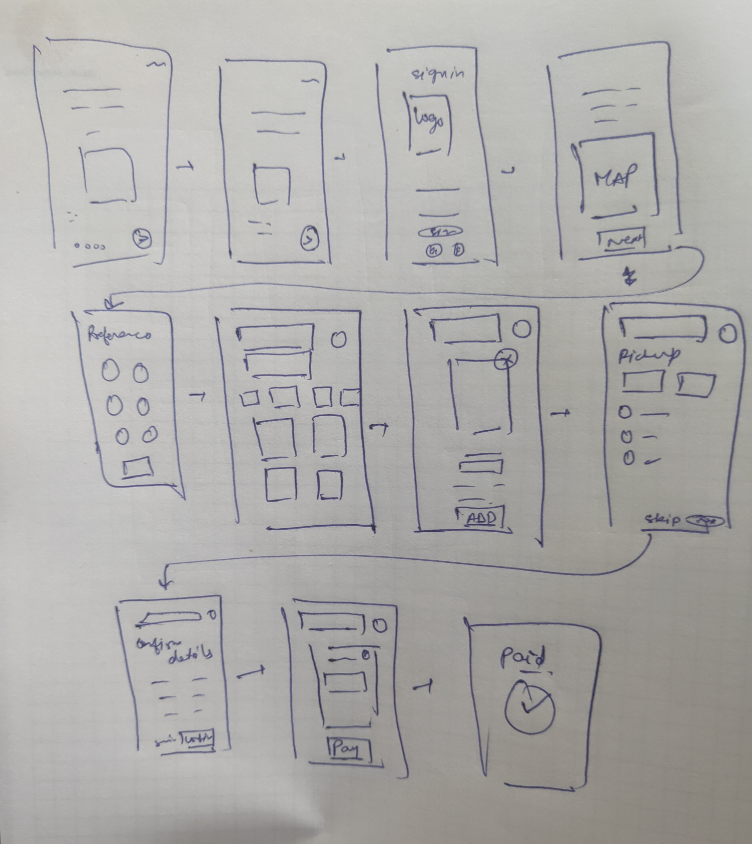 signin
Logo
MAP
Next
Preference
ADD
Pickup
skip
Confirm
details
Pay
Paid